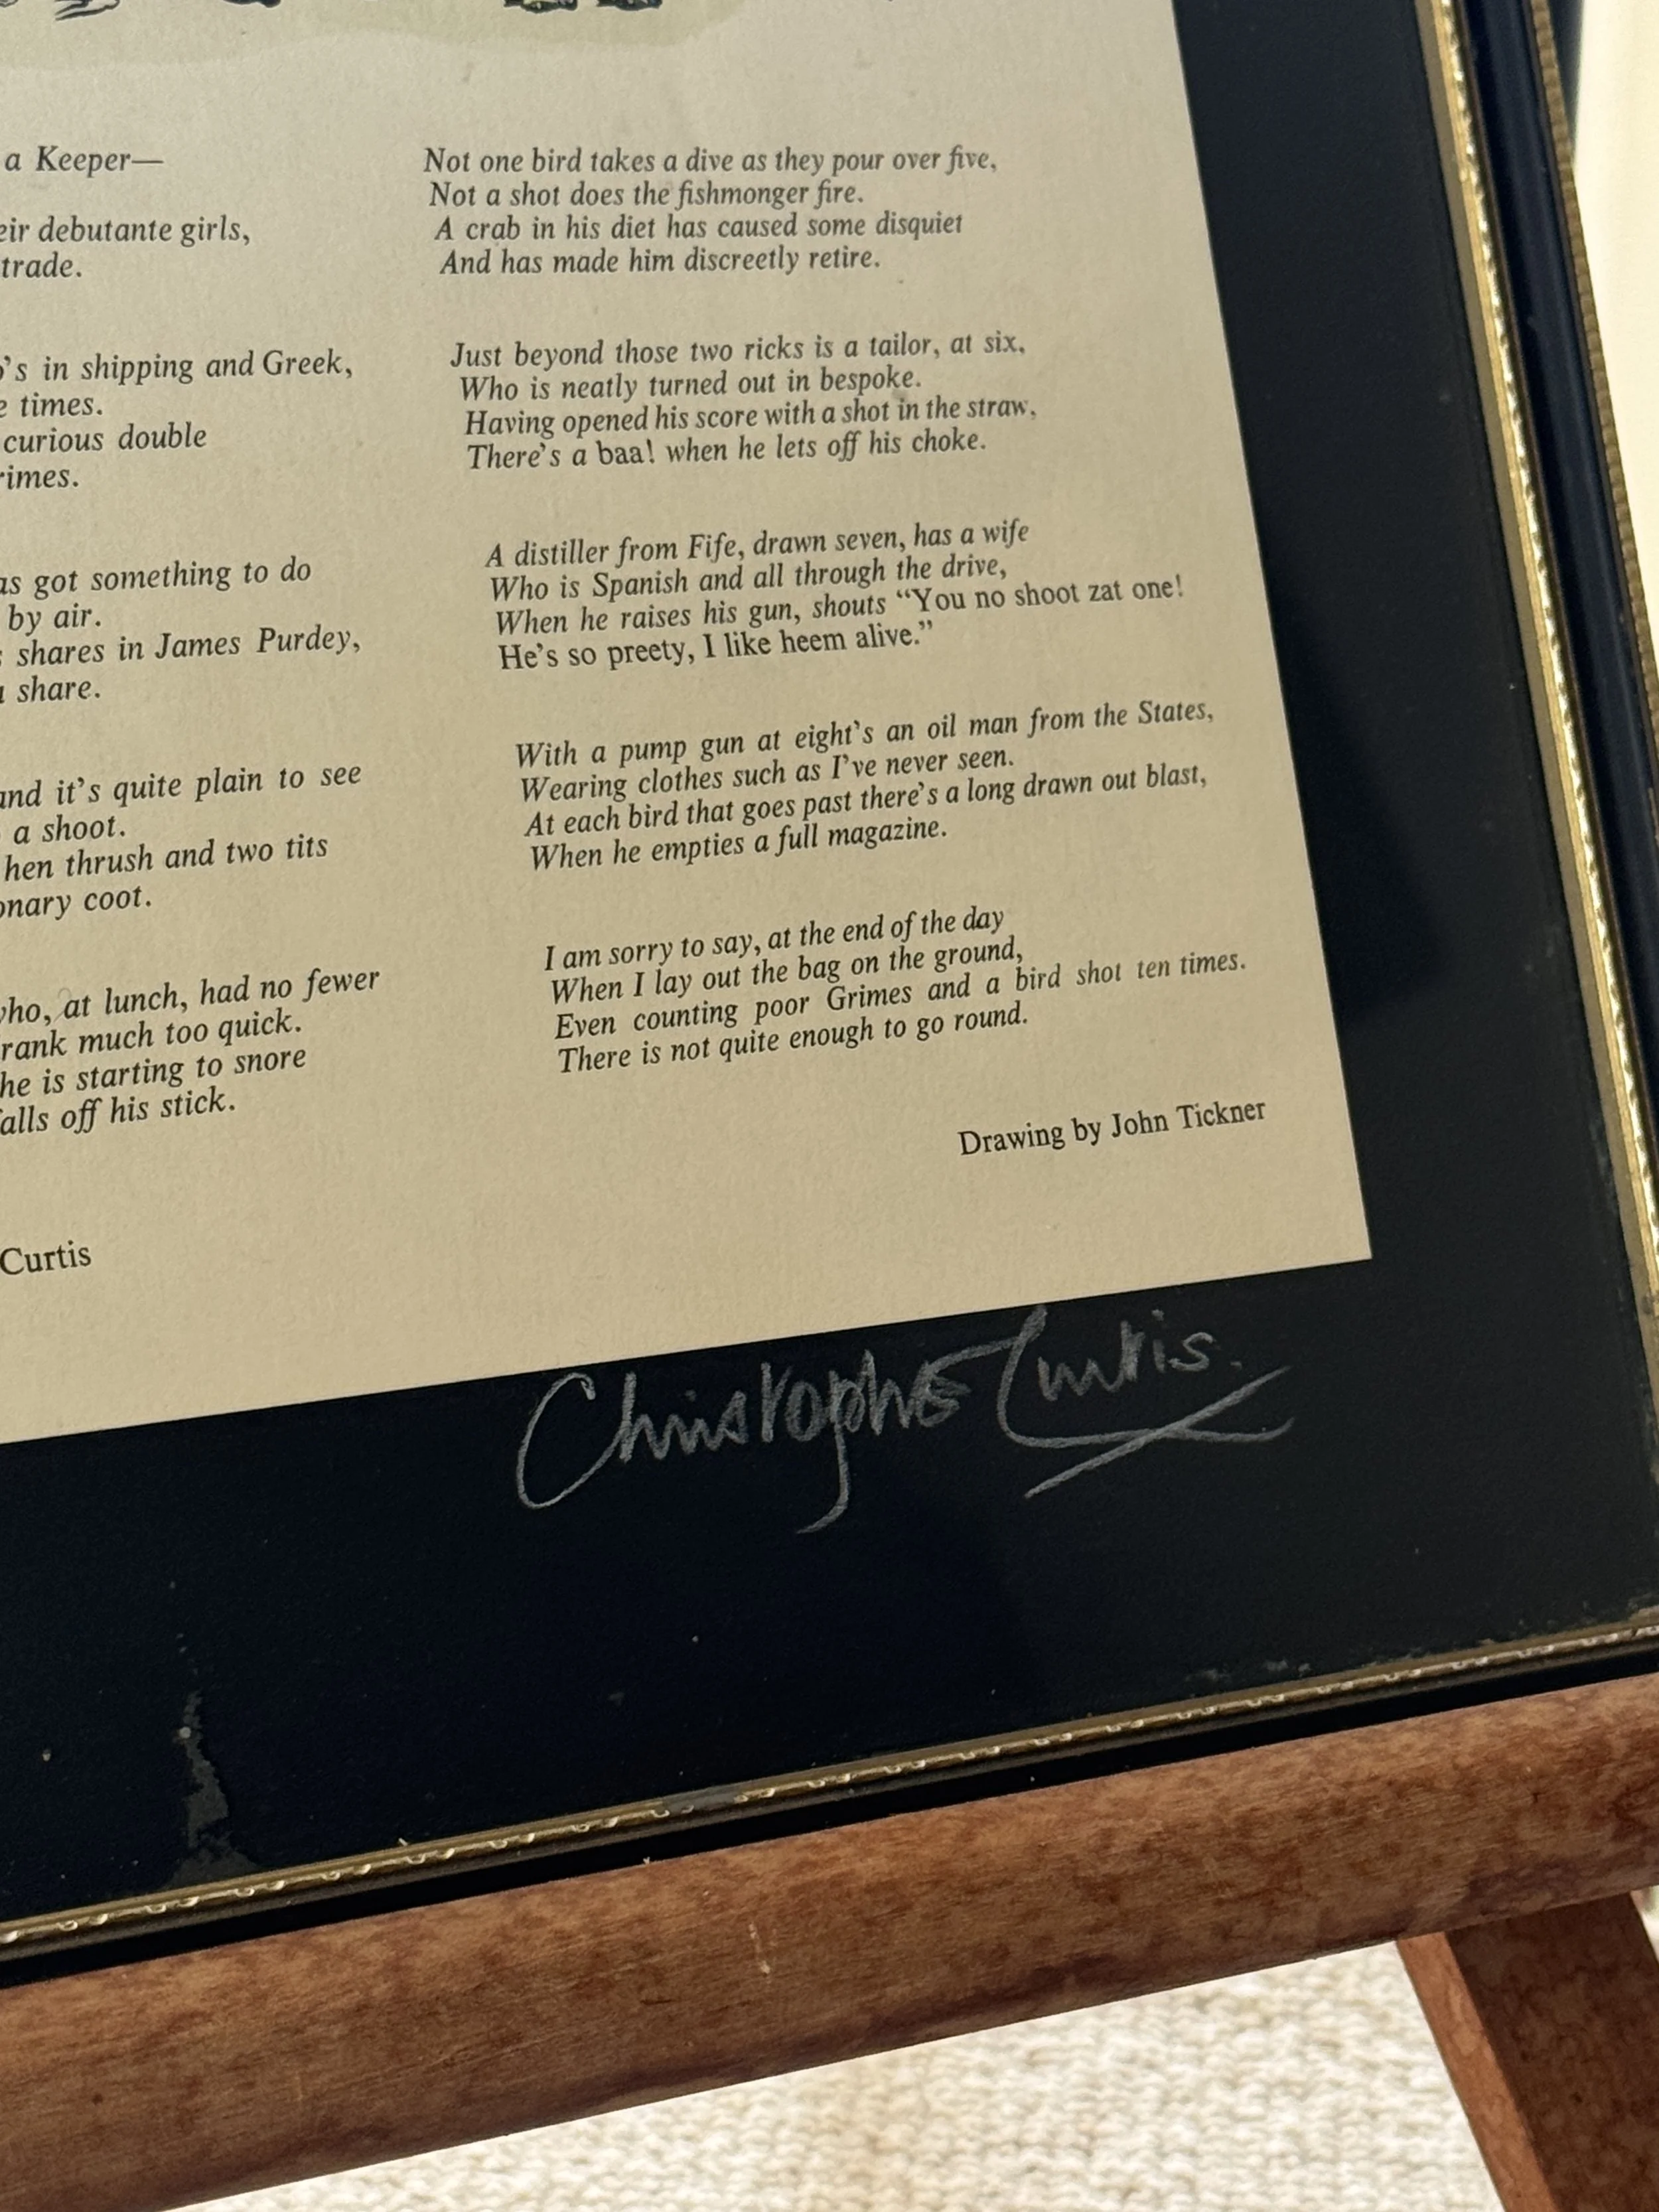 a Keeper—
eir debutante girls,
trade.
's in shipping and Greek,
times.
curious double
rimes.
as got something to do
by air.
shares in James Purdey,
share.
and it's quite plain to see
a shoot.
hen thrush and two tits
onary coot.
who, at lunch, had no fewer
rank much too quick.
he is starting to snore
falls off his stick.
Curtis
Not one bird takes a dive as they pour over five,
Not a shot does the fishmonger fire.
A crab in his diet has caused some disquiet
And has made him discreetly retire.
Just beyond those two ricks is a tailor, at six,
Who is neatly turned out in bespoke.
Having opened his score with a shot in the straw,
There's a baa! when he lets off his choke.
A distiller from Fife, drawn seven, has a wife
Who is Spanish and all through the drive,
When he raises his gun, shouts “You no shoot zat one!
He's so preety, I like heem alive.”
With a pump gun at eight's an oil man from the States,
Wearing clothes such as I've never seen.
At each bird that goes past there's a long drawn out blast,
When he empties a full magazine.
I am sorry to say, at the end of the day
When I lay out the bag on the ground,
Even counting poor Grimes and a bird shot ten times.
There is not quite enough to go round.
Drawing by John Tickner
Christopher Curtis.